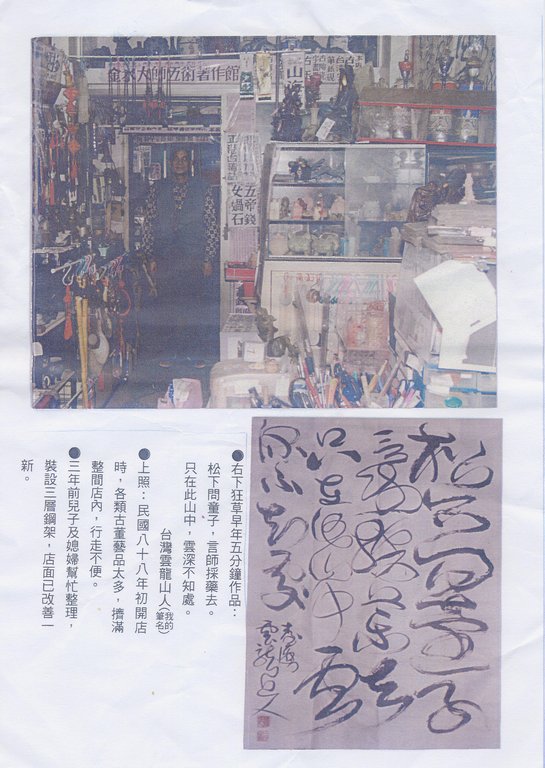 五術著作館
山
五帝錢
女媧石
松下問童子
言師採藥去
只在此山中雲
深不知處
雲龍山人
●右下狂草早年五分鐘作品：
松下問童子，言師採藥去。
只在此山中，雲深不知處。
台灣雲龍山人(我的筆名)
●上照：民國八十八年初開店
時，各類古董藝品太多，擠滿
整間店內，行走不便。
●三年前兒子及媳婦幫忙整理，
裝設三層鋼架，店面已改善一
新。